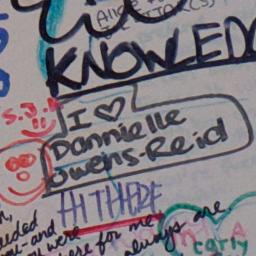 Alice
KNOWLED
S.J
I ♡
Dannielle
Owens-Reid
HI THERE
eeded
you-and were
here for me
always are
carly